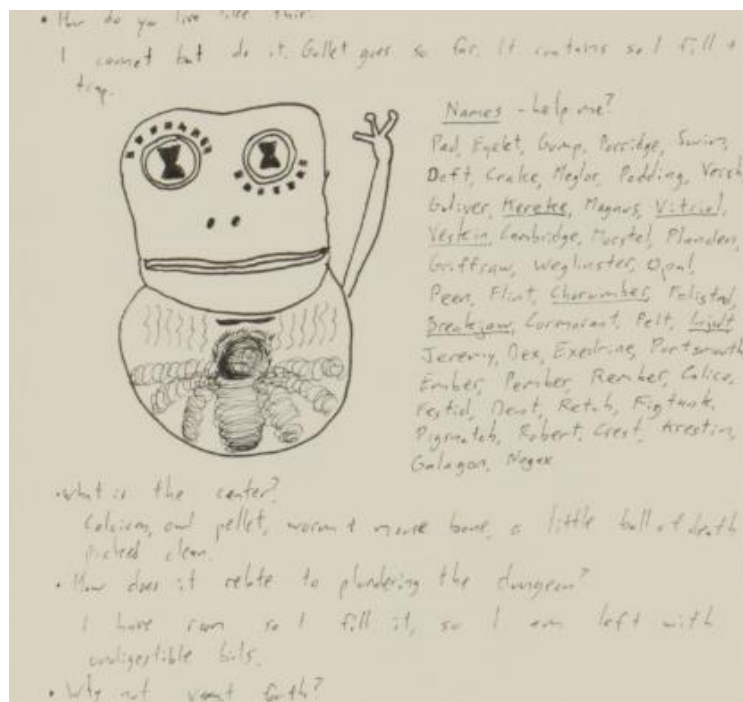 • How do you live like this?
I cannot but do it. Gullet goes so far. It contains so I fill a
trap.
Names - help me?
Pad, Eyelet, Gump, Porridge, Swim,
Doft, Crake, Meglor, Padding,
Guliver, Keretee, Magnus, Vitriol,
Veskin, Cambridge, Morstel, Planden,
Griffraw, Weglinster, Opal,
Peen, Flint, Chorumber, Felistad,
Breakjaw, Cormorant, Pelt,
Jeremy, Dex, Exedrine, Portsmouth
Ember, Pember, Rember, Calico,
Festid, Dent, Retch, Figtunk,
Pigsmatch, Robert, Crest, Krestin,
Galagon, Negex
• What is the center?
Calcium, owl pellet, mouse bone, a little ball of death
picked clean.
• How does it relate to plundering the dungeon?
I have room so I fill it, so I am left with
undigestible bits.
• Why not vomit forth?